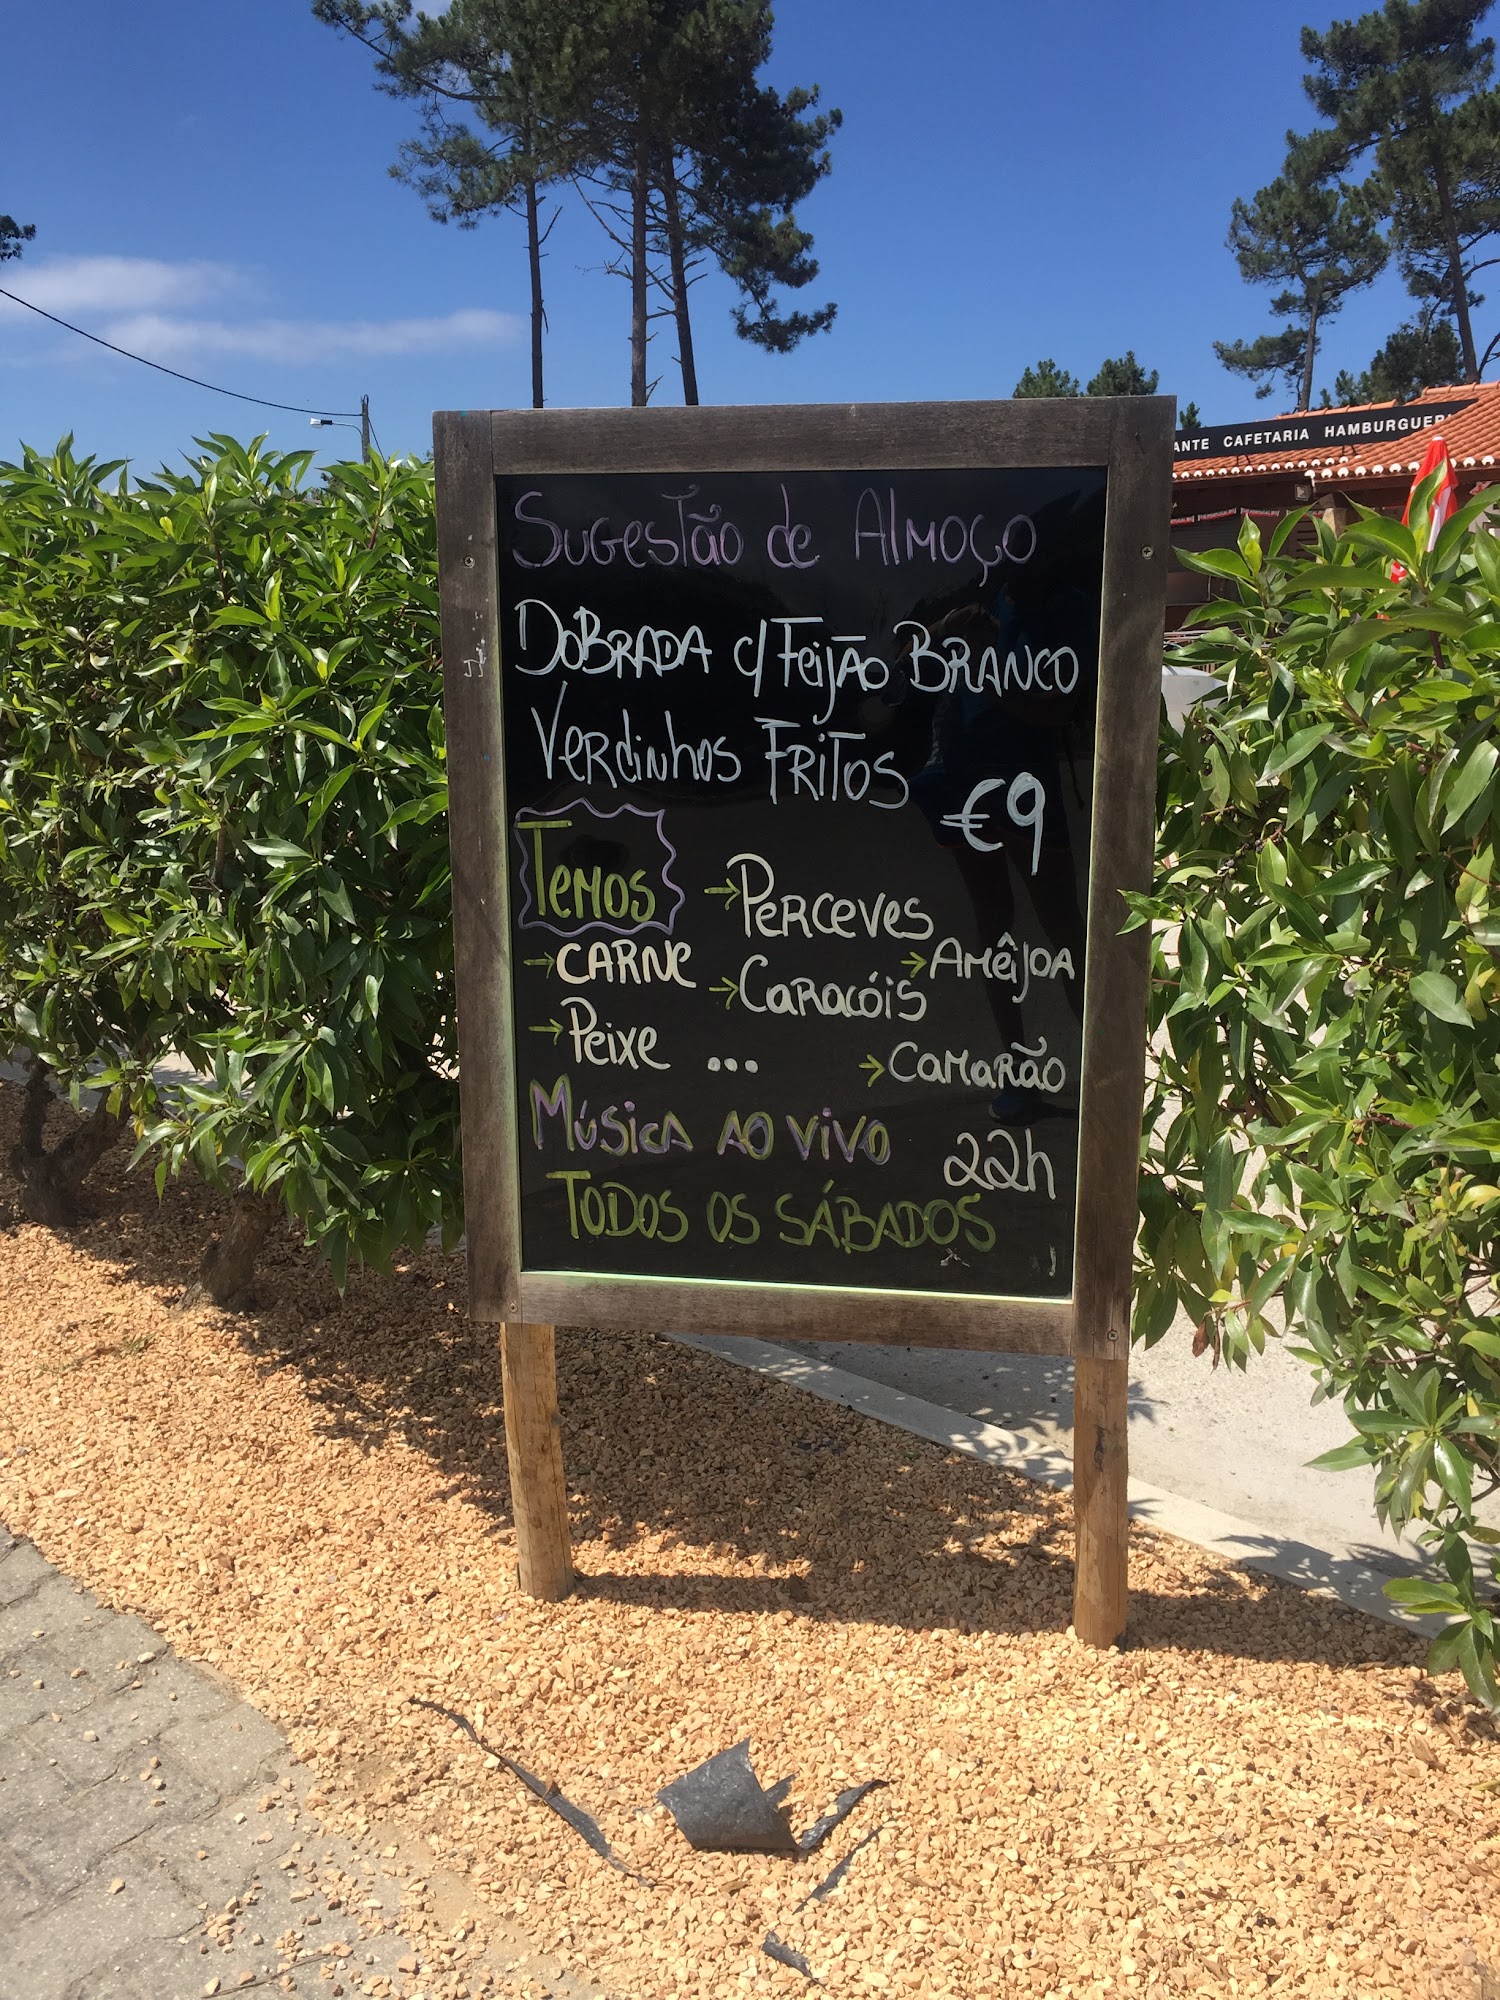 ANTE CAFETARIA HAMBURGUER
Sugestão de Almoço
Dobrada c/ Feijão Branco
Verdinhos Fritos
€9
Temos
→ Carne
→ Peixe ...
→ Perceves
→ Caracóis
→ Amêijoa
→ Camarão
Música ao vivo
22h
Todos os Sábados